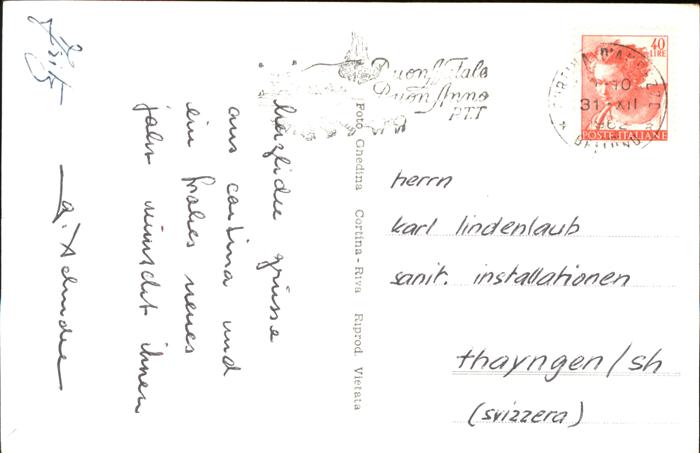 herzliche grüsse
aus cortina und
ein frohes neues
jahr wünscht ihnen
Fritz
Buon Natale
Buon Anno
PTT
Foto Ghedina Cortina - Riva Riprod. Vietata
40
LIRE
CORTINA D'AMPEZZO
10
31 - XII
1962
BELLUNO
POSTE ITALIANE
herrn
karl lindenlaub
sanit. installationen
thayngen/sh
(svizzera)